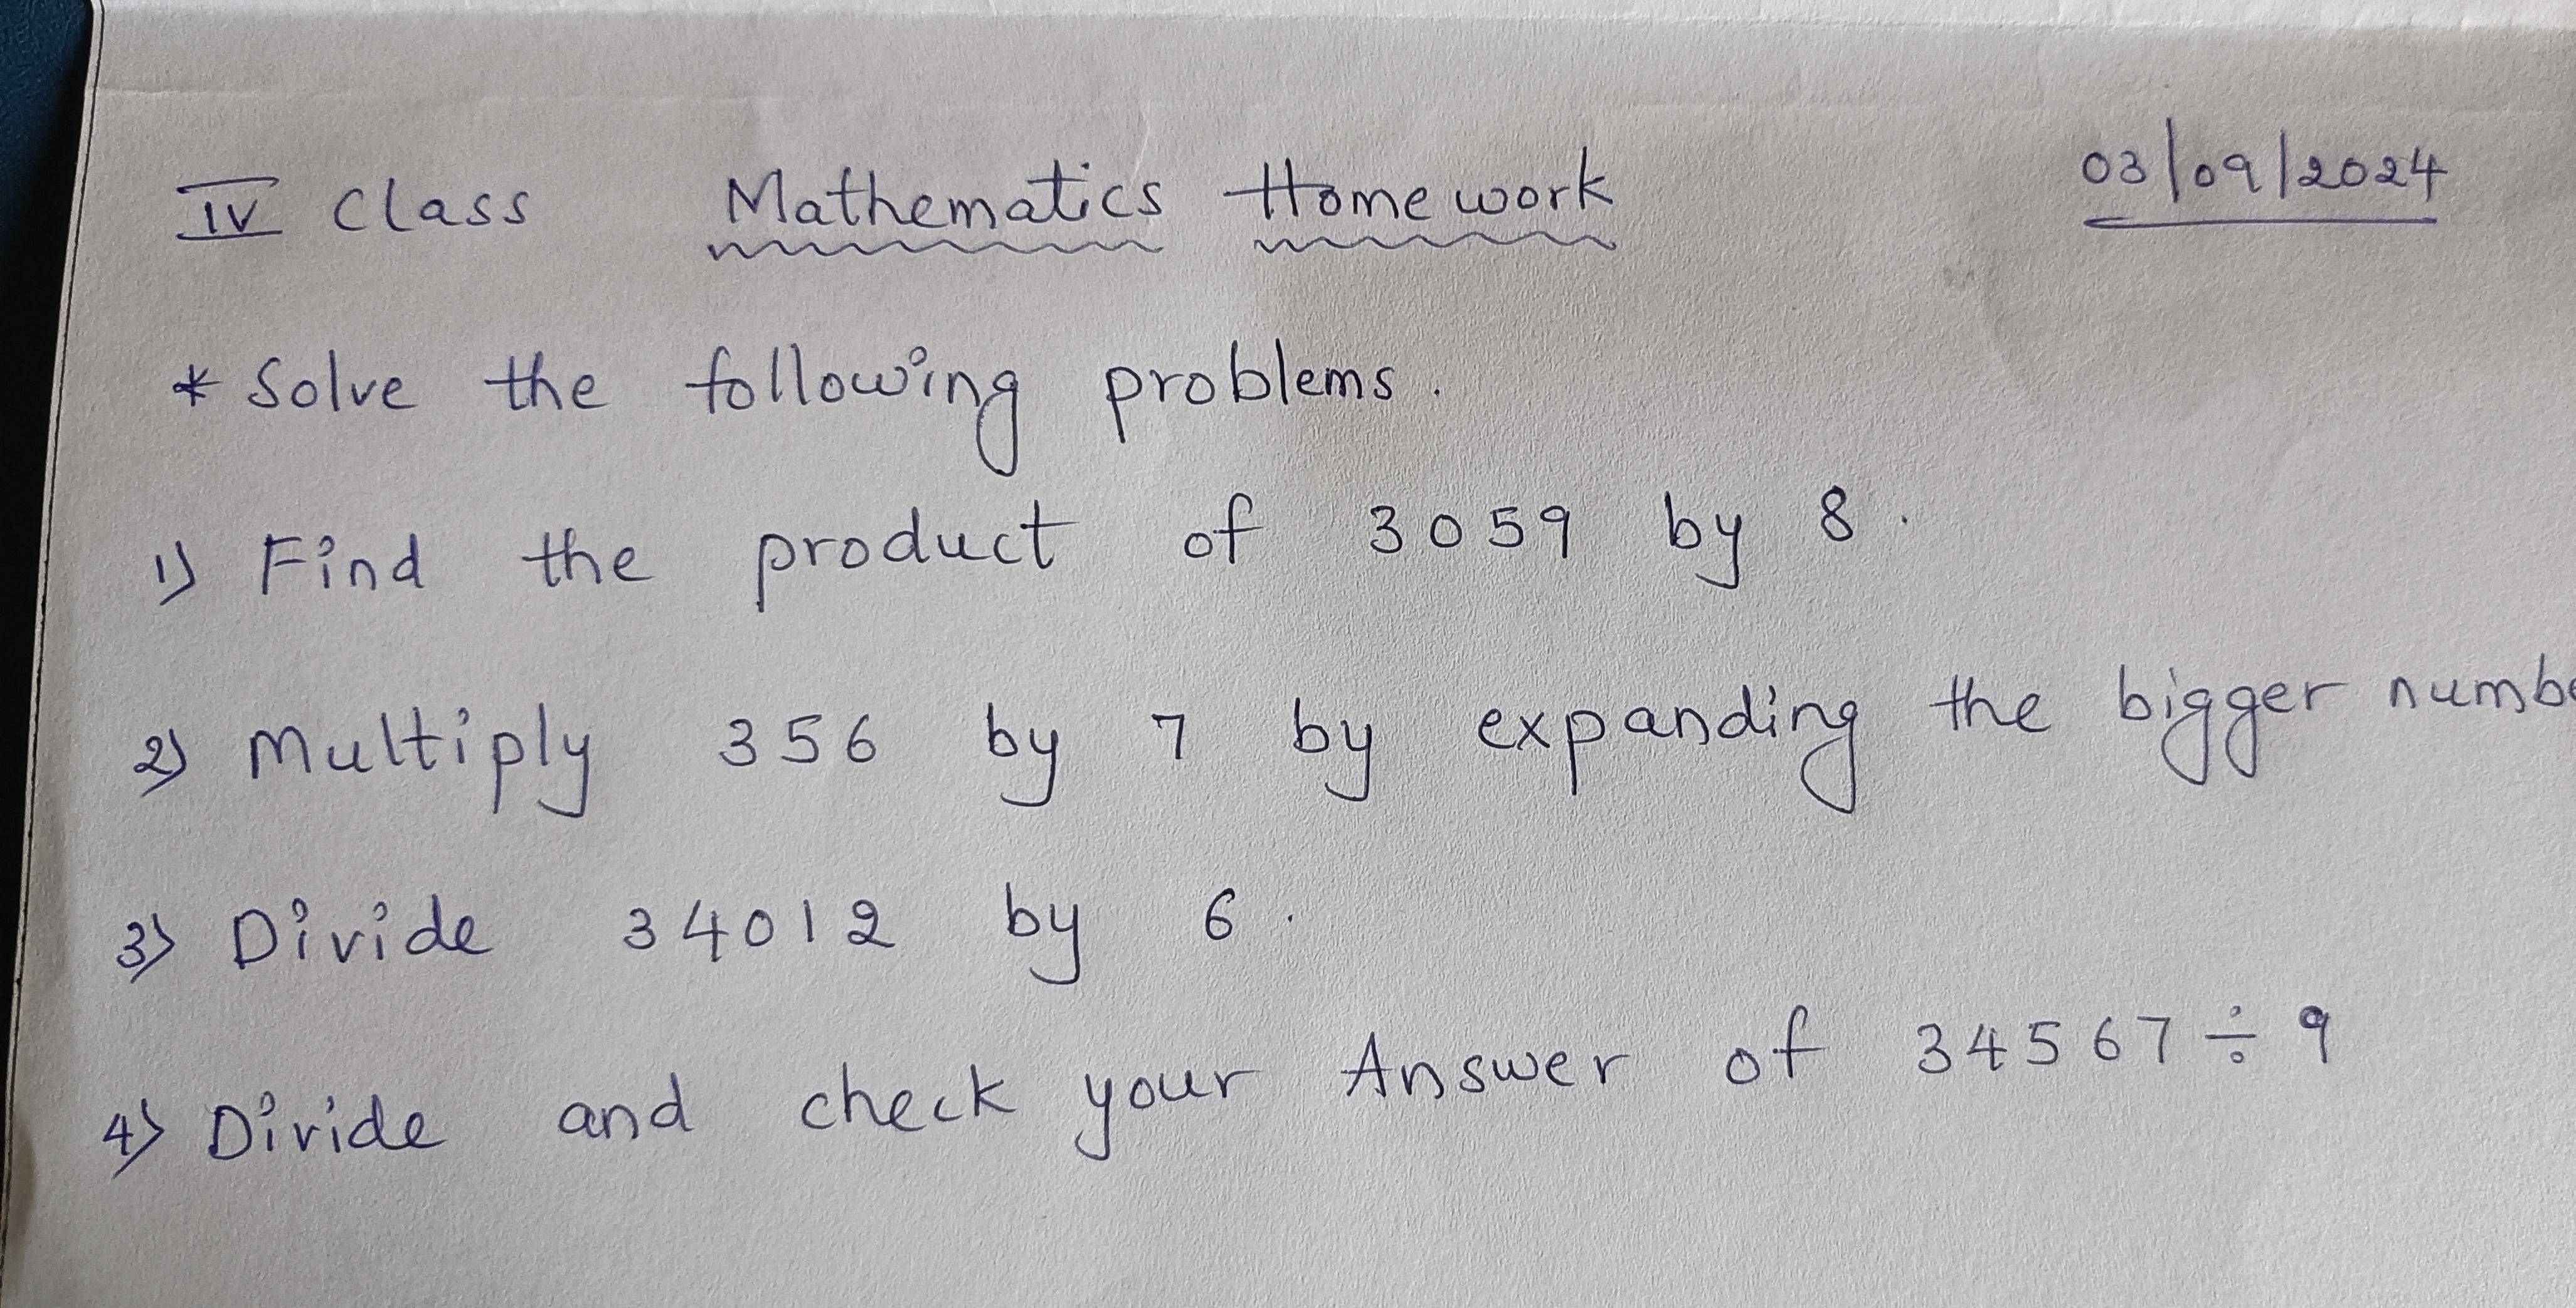 IV Class Mathematics Home work 03/09/2024
* Solve the following problems.
1) Find the product of 3059 by 8.
2) Multiply 356 by 7 by expanding the bigger numbe
3) Divide 34012 by 6.
4) Divide and check your Answer of 34567 ÷ 9